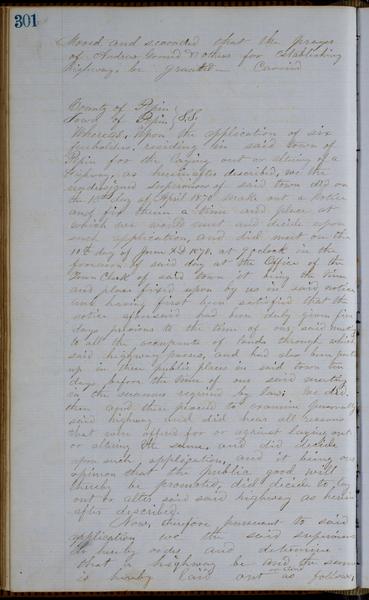 301
Moved and seconded that the prayer
of Andrew & others for establishing
highway be granted — Carried
County of Pepin }
Town of Pepin } S.S.
Whereas, Upon the application of six
freeholders residing in said town of
Pepin for the laying out or altering of a
Highway, as hereinafter described, we the
undersigned Supervisors of said town did on
the day of April 1870 make out a notice
and fix therein a time and place at
which we would meet and decide upon
such application, and did meet on the
11th day of June AD 1870, at o'clock in the
forenoon of said day at the Office of the
Town Clerk of said town it being the time
and place fixed upon by us in said notice
and having first been satisfied that the
notice aforesaid had been duly given five
days previous to the time of our said meeting
to all the occupants of lands through which
said highway passes, and had also been put
up in three public places in said town ten
days before the time of our said meeting
in the manner required by law; We did
then and there proceed to examine personally
said highway and did hear all reasons
that were offered for or against laying out
or altering the same, and did decide
upon such application, and it being our
opinion that the public good will
thereby be promoted, did decide to lay
out or alter said said highway as herein
after described.
Now, therefore pursuant to said
application we the said supervisors
do hereby order and determine
that a highway be and the same
is hereby laid out as follows,